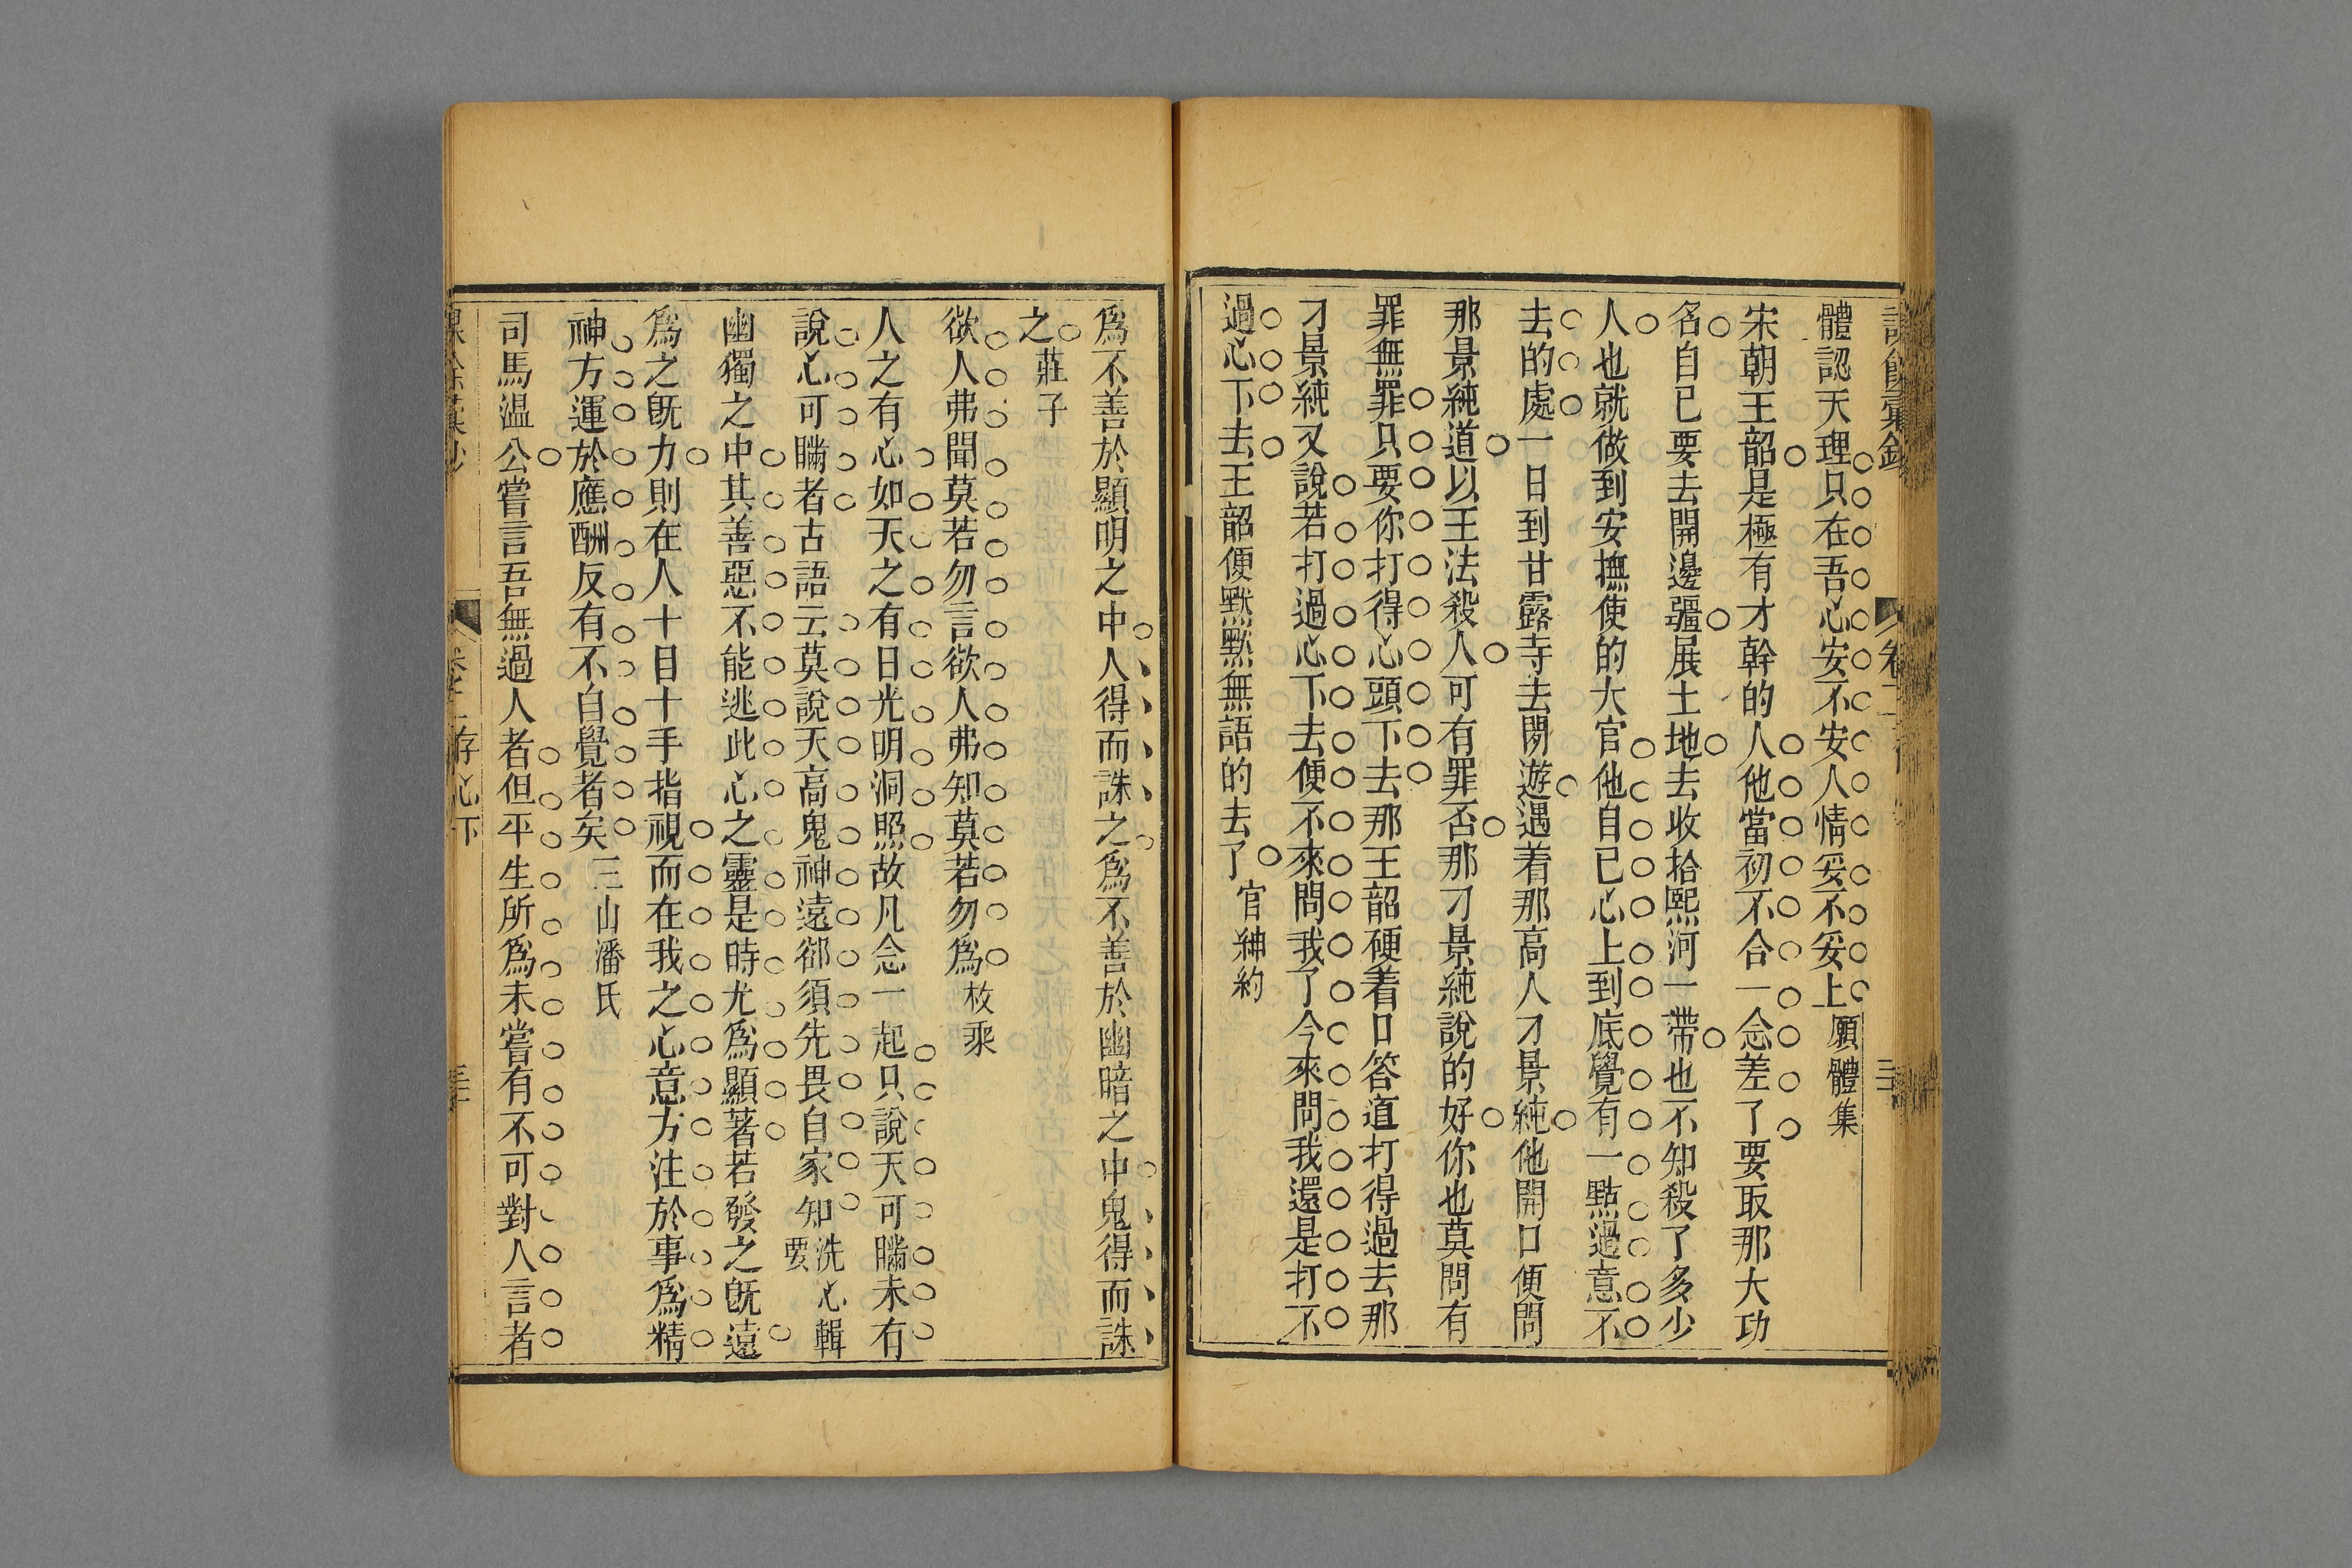 體認天理只在吾心安不安人情妥不妥上願體集
宋朝王韶是極有才幹的人他當初不合一念差了要取那大功
名自已要去開邊疆展土地去收拾熙河一帶也不知殺了多少
人也就做到安撫使的大官他自已心上到底覺有一點過意不
去的處一日到甘露寺去閒遊遇着那高人刁景純他開口便問
那景純道以王法殺人可有罪否那刁景純說的好你也莫問有
罪無罪只要你打得心頭下去那王韶硬着口答道打得過去那
刁景純又說若打過心下去便不來問我了今來問我還是打不
過心下去王韶便默默無語的去了官紳約
為不善於顯明之中人得而誅之為不善於幽暗之中鬼得而誅
之莊子
欲人弗聞莫若勿言欲人弗知莫若勿為枚乘
人之有心如天之有日光明洞照故凡念一起只說天可瞞未有
說心可瞞者古語云莫說天高鬼神遠郤須先畏自家知洗心輯要
幽獨之中其善惡不能逃此心之靈是時尤為顯著若發之旣遠
為之旣力則在人十目十手指視而在我之心意方注於事為精
神方運於應酬反有不自覺者矣三山潘氏
司馬温公嘗言吾無過人者但平生所為未嘗有不可對人言者
存心下